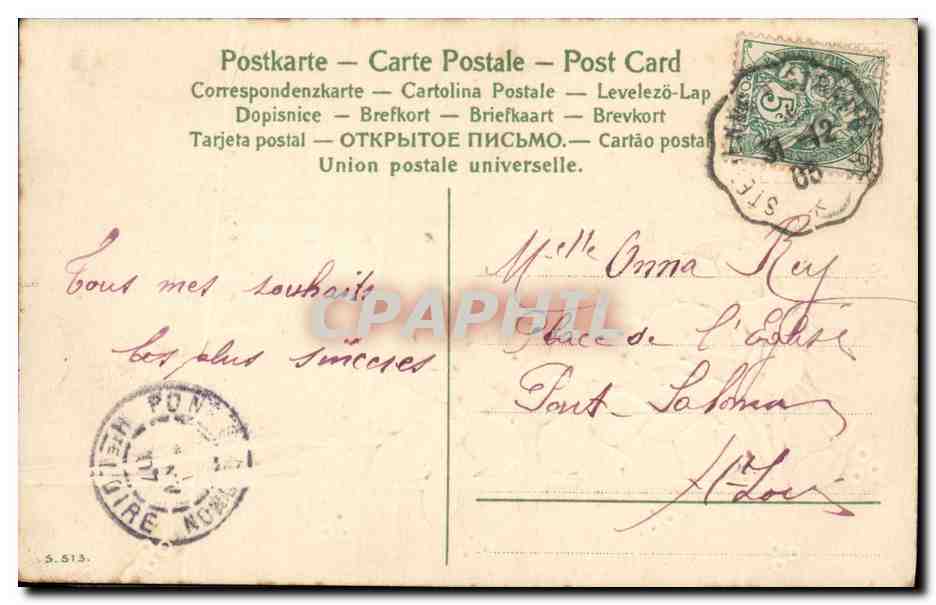 Postkarte – Carte Postale – Post Card
Correspondenzkarte – Cartolina Postale – Levelezö-Lap
Dopisnice – Brefkort – Briefkaart – Brevkort
Tarjeta postal – ОТКРЫТОЕ ПИСЬМО. – Cartão postal
Union postale universelle.
5
31 12
06
STE
Tous mes souhaits
les plus sincères
Melle Anna Rey
Place de l'Eglise
Pont Salomon
Hte Loire
CPAPHIL
PONT
HTE LOIRE
S. 513.